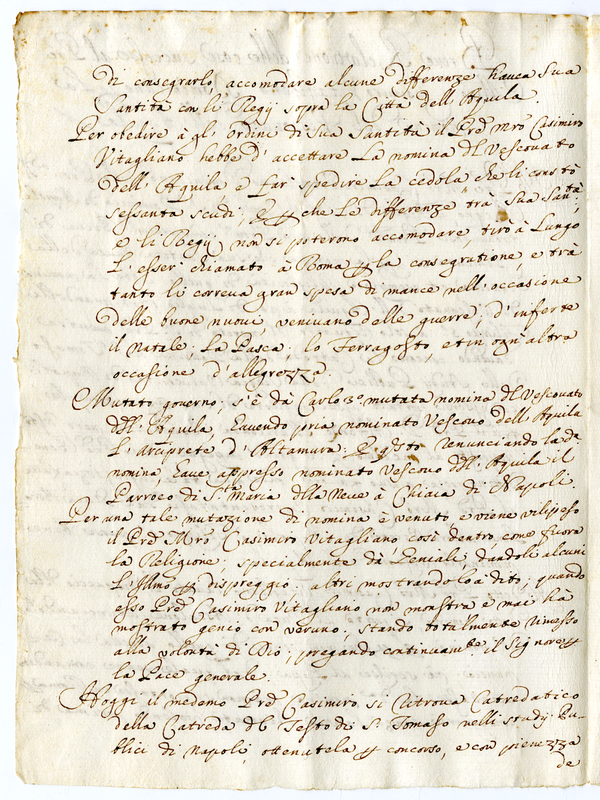 di consegrarlo, accomodare alcune differenze havea Sua
Santità con li Regij sopra la Città dell'Aquila.
Per obedire à gl'ordini di Sua Santità il Pred.º Mrõ Casimiro
Vitagliano hebbe d'accettare La nomina del Vescovato
dell'Aquila e far spedire La cedola che li constò
sessanta scudi; e che Le differenze trà Sua San.tà
e li Regij non si poterono accomodare, tirò à Lungo
L'esser chiamato à Roma per la consegratione, e trà
tanto li correva gran spesa di mance nell'occasione
delle buone nuove venivano delle guerre, d'inferte
il Natale, La Pasca, lo Ferragosto, et in ogn'altra
occasione d'allegrezza.
Mutato governo, s'è dà Carlo 3º mutata nomina del Vescovato
dell'Aquila, havendo pria nominato Vescovo dell'Aquila
L'arciprete d'Altamura: e questo renunciando la d.ª
nomina, have appresso nominato Vescovo dell'Aquila il
Parroco di S.ta Maria della Neve à Chiaia di Napoli
Per una tale mutazzione di nomina è venuto e viene vilipeso
il Pred.º Mrõ Casimiro Vitagliano così dentro, come fuora
la Religione; specialmente dà Geniali, dandoli alcuni
L'Illmo per dispreggio altri mostrandolo à dito; quando
esso Pred.º Casimiro Vitagliano non monstra e mai ha
mostrato genio con veruno, stando totalmente rimesso
alla volontà di Dio; pregando continuam.te il Signore per
la Pace generale.
Hoggi il medemo Pred.º Casimiro si ritrova Catredatico
della Catreda del Testo di S. Tomaso nelli studij Pu-
blici di Napoli, ottenutela per concorso, e con pienezza
de